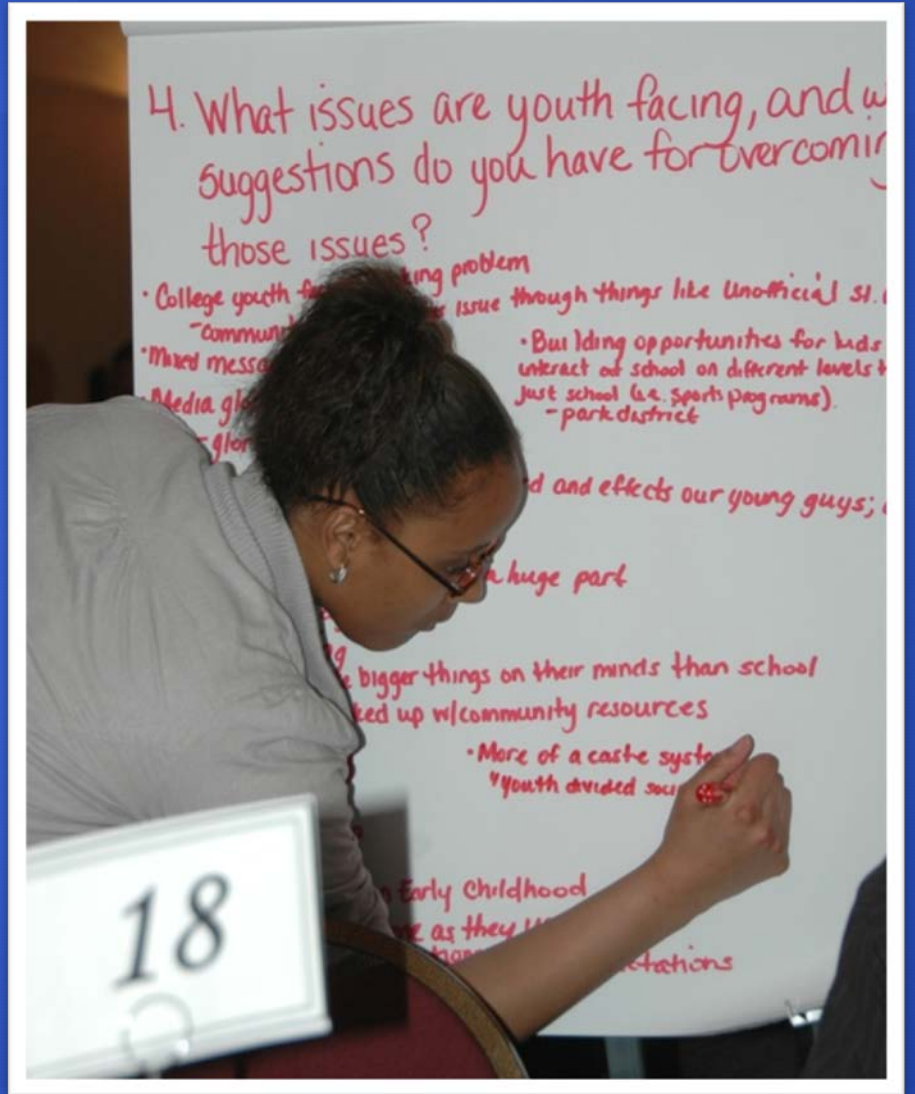 4. What issues are youth facing, and
suggestions do you have for overcomin
those issues?
• College youth problem
issue through things like Unofficial St.
- Commun
• Mixed messa
• Building opportunities for kids
interact out school on different levels
just school (i.e. sports programs).
- park district
Media gl
- glor
and effects our young guys;
huge part
bigger things on their minds than school
up w/community resources
• More of a caste syst
Youth divided soci
Early Childhood
as they
18